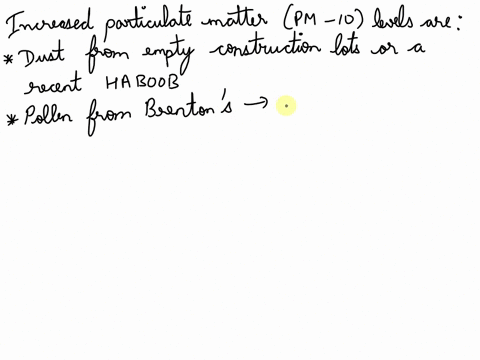 Increased particulate matter (PM-10) levels are:
* Dust from empty construction lots or a
recent HABOOB
* Pollen from Brenton's →